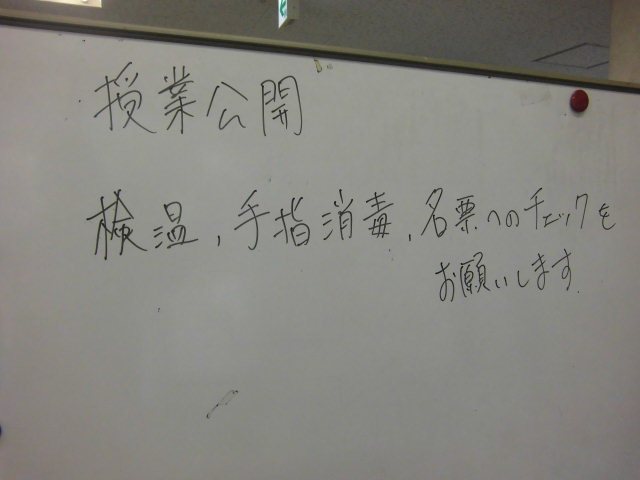 授業公開
検温,手指消毒,名票へのチェックを
お願いします